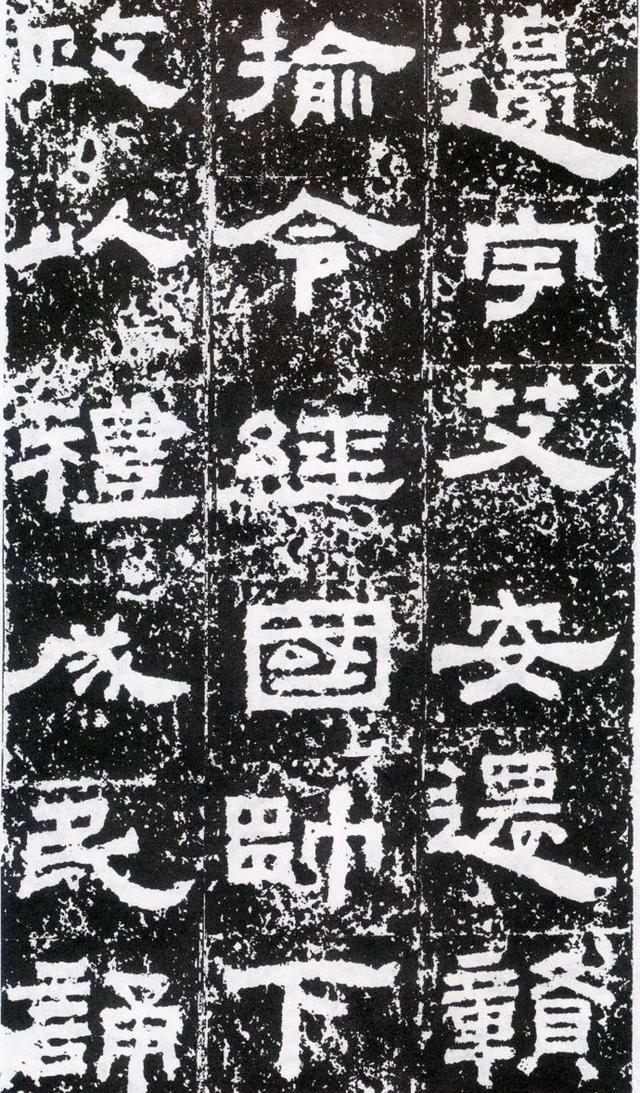 邊宇艾安遷贛
揄令經國帥下
政以禮民誦